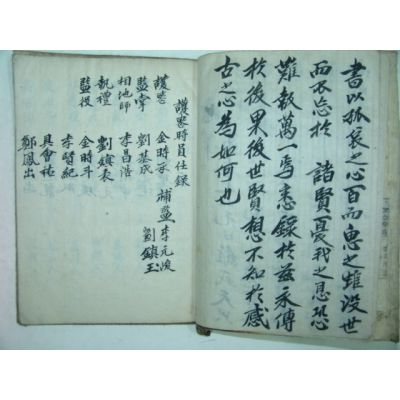 書以孤哀之心百而思之雖沒世
而不忘於 諸賢憂我之恩恐
難報萬一焉悉錄於茲永傳
於後果後世賢想不知於感
古之心為如何也
護喪時員任錄
護喪 金時 補監 李元浚
劉鎮玉
監掌 劉基成
相地師 李昌浩
執禮 劉
監役 金時斗
李 紀
具會祐
鄭鳳出